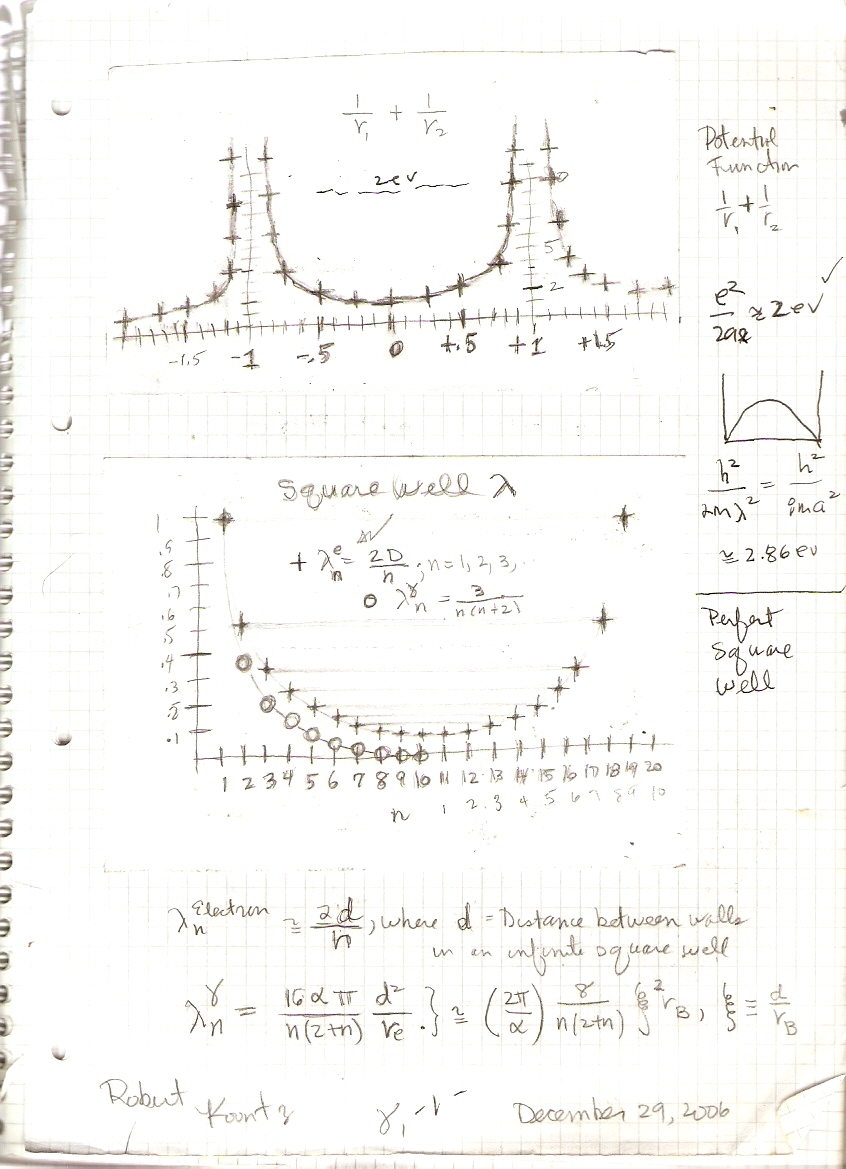 1/r₁ + 1/r₂
2ev
5
2
-1.5 -1 -.5 0 +.5 +1 +1.5
Potential
Function
1/r₁ + 1/r₂
≈ 2ev ✓
h²/2mλ² = h²/8ma²
≃ 2.86 ev
Perfect
Square
Well
Square Well λ
+ λₙᵉ = 2D/n ; n=1, 2, 3,
o λₙᵞ = 3/n(n+2)
1
.9
.8
.7
.6
.5
.4
.3
.2
.1
1 2 3 4 5 6 7 8 9 10 11 12 13 14 15 16 17 18 19 20
n 1 2 3 4 5 6 7 8 9 10
λₙ^Electron ≅ 2d/n, where d = Distance between walls
in an infinite square well
λₙᵞ = 16απ/n(2+n) d²/rₑ .} ≅ (2π/α) 8/n(2+n) ξ² r_B, ξ ≡ d/r_B
Robert Koontz December 29, 2006